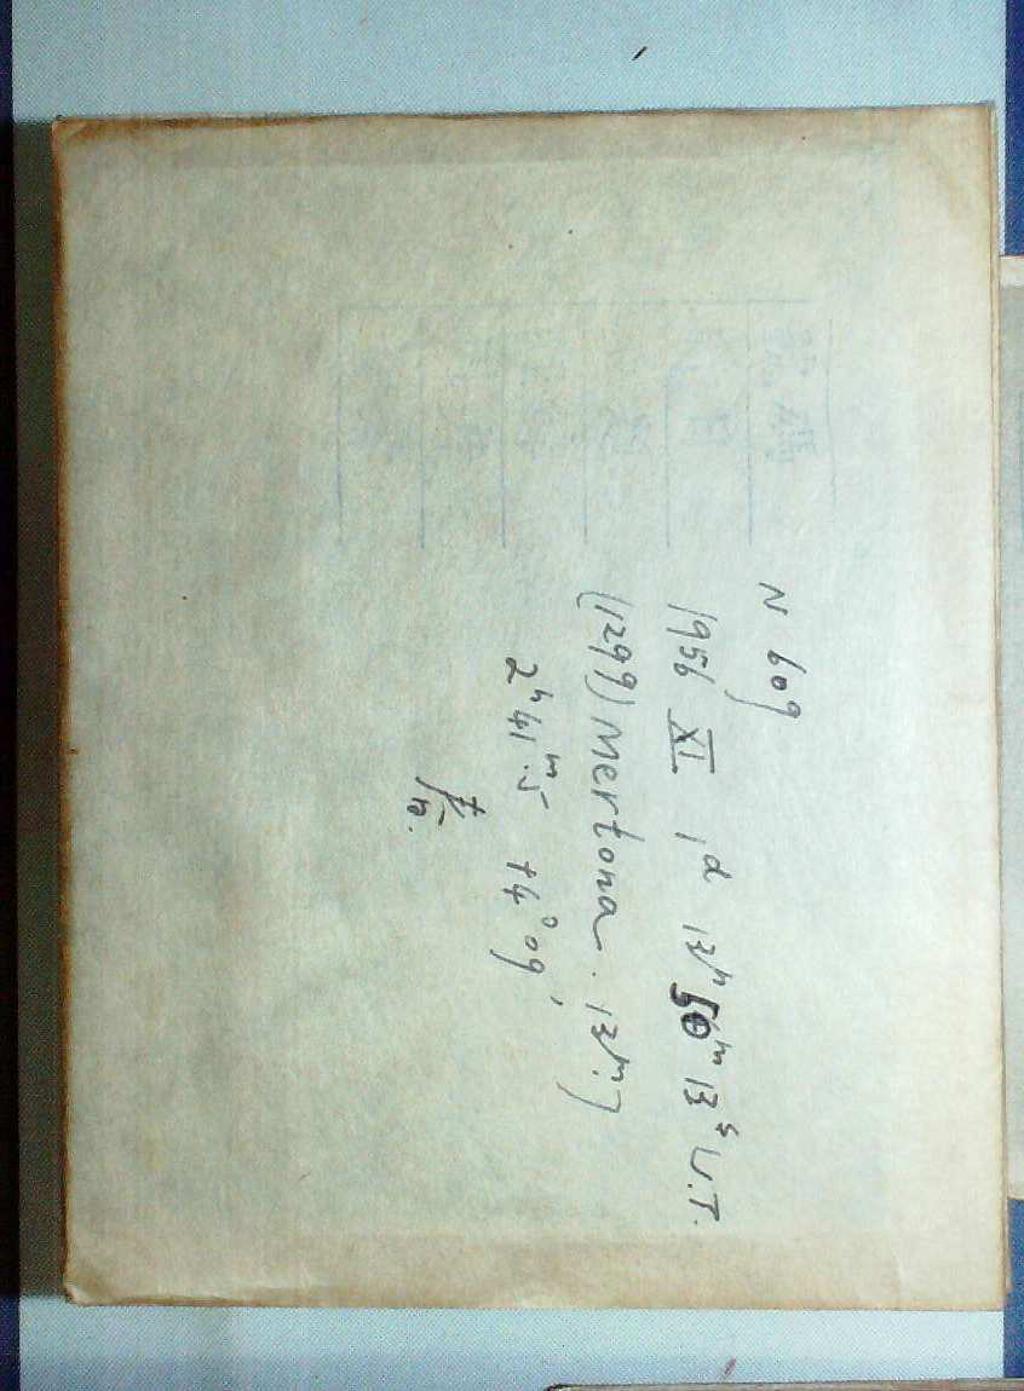 N 609
1956 XI 1ᵈ 13ʰ 50ᵐ 13ˢ U.T.
(1299) Mertona. 13ᵐ.)
2ʰ 41ᵐ.5 +4° 09'